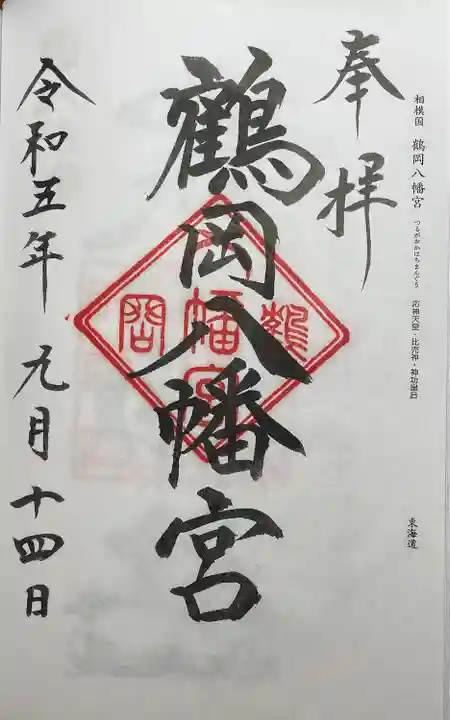 相模国 鶴岡八幡宮 つるがおかはちまんぐう 応神天皇・比売神・神功皇后
東海道
奉拝
鶴岡八幡宮
令和五年 九月十四日